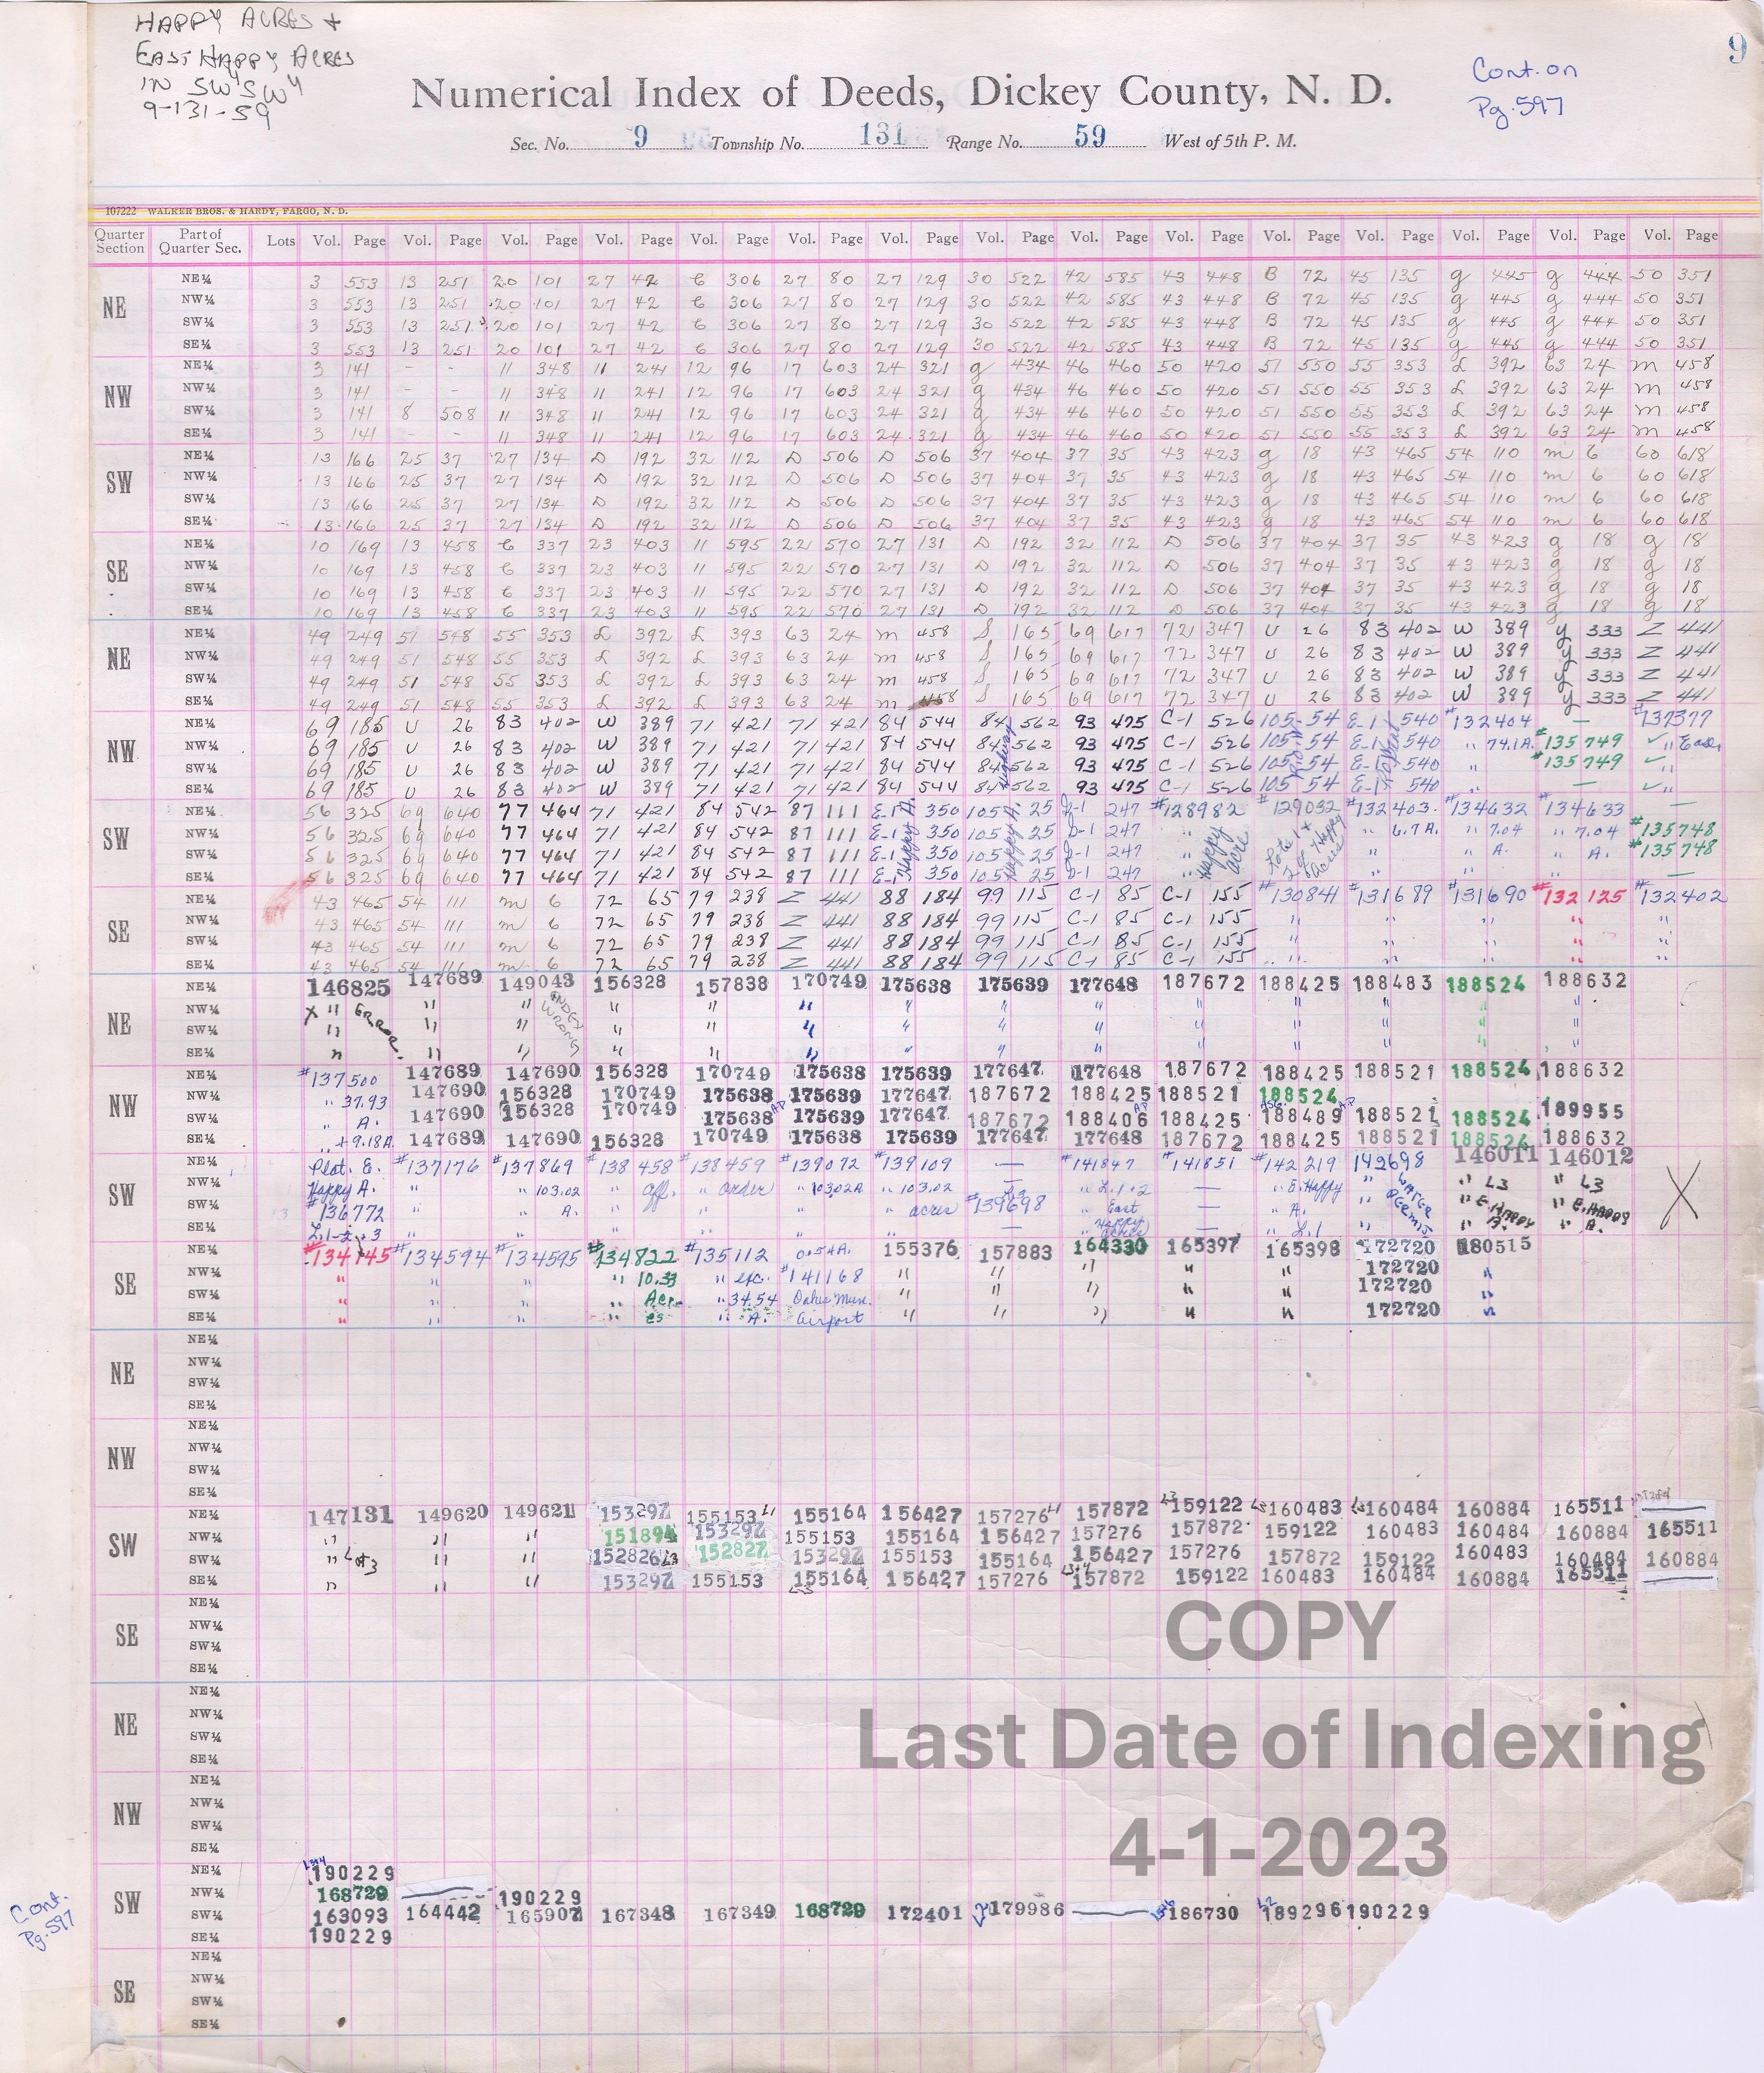 HAPPY ACRES +
EAST HAPPY ACRES
IN SW¼SW¼
9-131-59
9
Cont. on
Pg. 597
Numerical Index of Deeds, Dickey County, N. D.
Sec. No. 9 Township No. 131 Range No. 59 West of 5th P. M.
107222 WALKER BROS. & HARDY, FARGO, N. D.
Quarter Section Part of Quarter Sec. Lots Vol. Page Vol. Page Vol. Page Vol. Page Vol. Page Vol. Page Vol. Page Vol. Page Vol. Page Vol. Page Vol. Page Vol. Page Vol. Page Vol. Page Vol. Page
NE
NE¼ 3 553 13 251 20 101 27 42 C 306 27 80 27 129 30 522 42 585 43 448 B 72 45 135 g 445 g 444 50 351
NW¼ 3 553 13 251 20 101 27 42 C 306 27 80 27 129 30 522 42 585 43 448 B 72 45 135 g 445 g 444 50 351
SW¼ 3 553 13 251 20 101 27 42 C 306 27 80 27 129 30 522 42 585 43 448 B 72 45 135 g 445 g 444 50 351
SE¼ 3 553 13 251 20 101 27 42 C 306 27 80 27 129 30 522 42 585 43 448 B 72 45 135 g 445 g 444 50 351
NW
NE¼ 3 141 - - 11 348 11 241 12 96 17 603 24 321 g 434 46 460 50 420 51 550 55 353 L 392 63 24 m 458
NW¼ 3 141 - - 11 348 11 241 12 96 17 603 24 321 g 434 46 460 50 420 51 550 55 353 L 392 63 24 m 458
SW¼ 3 141 8 508 11 348 11 241 12 96 17 603 24 321 g 434 46 460 50 420 51 550 55 353 L 392 63 24 m 458
SE¼ 3 141 - - 11 348 11 241 12 96 17 603 24 321 g 434 46 460 50 420 51 550 55 353 L 392 63 24 m 458
SW
NE¼ 13 166 25 37 27 134 D 192 32 112 D 506 D 506 37 404 37 35 43 423 g 18 43 465 54 110 m 6 60 618
NW¼ 13 166 25 37 27 134 D 192 32 112 D 506 D 506 37 404 37 35 43 423 g 18 43 465 54 110 m 6 60 618
SW¼ 13 166 25 37 27 134 D 192 32 112 D 506 D 506 37 404 37 35 43 423 g 18 43 465 54 110 m 6 60 618
SE¼ 13 166 25 37 27 134 D 192 32 112 D 506 D 506 37 404 37 35 43 423 g 18 43 465 54 110 m 6 60 618
SE
NE¼ 10 169 13 458 C 337 23 403 11 595 22 570 27 131 D 192 32 112 D 506 37 404 37 35 43 423 g 18 g 18
NW¼ 10 169 13 458 C 337 23 403 11 595 22 570 27 131 D 192 32 112 D 506 37 404 37 35 43 423 g 18 g 18
SW¼ 10 169 13 458 C 337 23 403 11 595 22 570 27 131 D 192 32 112 D 506 37 404 37 35 43 423 g 18 g 18
SE¼ 10 169 13 458 C 337 23 403 11 595 22 570 27 131 D 192 32 112 D 506 37 404 37 35 43 423 g 18 g 18
NE
NE¼ 49 249 51 548 55 353 L 392 L 393 63 24 m 458 S 165 69 617 72 347 U 26 83 402 W 389 y 333 Z 441
NW¼ 49 249 51 548 55 353 L 392 L 393 63 24 m 458 S 165 69 617 72 347 U 26 83 402 W 389 y 333 Z 441
SW¼ 49 249 51 548 55 353 L 392 L 393 63 24 m 458 S 165 69 617 72 347 U 26 83 402 W 389 y 333 Z 441
SE¼ 49 249 51 548 55 353 L 392 L 393 63 24 m 458 S 165 69 617 72 347 U 26 83 402 W 389 y 333 Z 441
NW
NE¼ 69 185 U 26 83 402 W 389 71 421 71 421 84 544 84 562 93 475 C-1 526 105 54 E-1 540 #132404 — #137377
NW¼ 69 185 U 26 83 402 W 389 71 421 71 421 84 544 84 562 93 475 C-1 526 105 54 E-1 540 " 74.1A. #135749 ✓ " Ease.
SW¼ 69 185 U 26 83 402 W 389 71 421 71 421 84 544 84 562 93 475 C-1 526 105 54 E-1 540 " #135749 ✓ "
SE¼ 69 185 U 26 83 402 W 389 71 421 71 421 84 544 84 562 93 475 C-1 526 105 54 E-1 540 " — ✓ "
Highway
SW
NE¼ 56 325 69 640 77 464 71 421 84 542 87 111 E-1 350 105 25 D-1 247 #128982 #129032 #132403 #134632 #134633 —
NW¼ 56 325 69 640 77 464 71 421 84 542 87 111 E-1 350 105 25 D-1 247 " " 6.7A. " 7.04 " 7.04 #135748
SW¼ 56 325 69 640 77 464 71 421 84 542 87 111 E-1 350 105 25 D-1 247 " " " A. " A. #135748
SE¼ 56 325 69 640 77 464 71 421 84 542 87 111 E-1 350 105 25 D-1 247 " " " "
Happy A.
Happy A.
Happy acre
Lots 1 + 2 of Happy Acres
SE
NE¼ 43 465 54 111 m 6 72 65 79 238 Z 441 88 184 99 115 C-1 85 C-1 155 #130841 #131689 #131690 #132125 #132402
NW¼ 43 465 54 111 m 6 72 65 79 238 Z 441 88 184 99 115 C-1 85 C-1 155 " " " " "
SW¼ 43 465 54 111 m 6 72 65 79 238 Z 441 88 184 99 115 C-1 85 C-1 155 " " " " "
SE¼ 43 465 54 111 m 6 72 65 79 238 Z 441 88 184 99 115 C-1 85 C-1 155 " " " " "
NE
NE¼ 146825 147689 149043 156328 157838 170749 175638 175639 177648 187672 188425 188483 188524 188632
NW¼ X " ERROR " " " " " " " " " " " " "
SW¼ " " " " " " " " " " " " "
SE¼ " " " " " " " " " " " " " "
INDEX WRONG
NW
NE¼ #137500 147689 147690 156328 170749 175638 175639 177647 177648 187672 188425 188521 188524 188632
NW¼ " 37.93 147690 156328 170749 175638 175639 177647 187672 188425 188521 188524
SW¼ " A. 147690 156328 170749 175638 AP 175639 177647 187672 188406 AP 188425 188489 ASG. 188521 AP 188524 189955
SE¼ " +9.18A 147689 147690 156328 170749 175638 175639 177647 177648 187672 188425 188521 188524 188632
SW
NE¼ Plat. E. #137176 #137869 #138458 #138459 #139072 #139109 — #141847 #141851 #142219 142698 146011 146012
NW¼ Happy A. " " 103.02 " aff. " order " 103.02A " 103.02 " L.1+2 — " E.Happy " WATER " L3 " L3
SW¼ #136772 " " A. " " " " acres #139698 " East — " A. " PERMIS " E.HAPPY " E.HAPPY
SE¼ L.1-2+3 " " " " " " — " Happy acres — " L.1 " " A. " A.
X
SE
NE¼ #134145 #134594 #134595 #134822 #135112 0.54A. 155376 157883 164330 165397 165398 172720 180515
NW¼ " " " " 10.33 " exc. #141168 " " " " " 172720 "
SW¼ " " " " Acr- " 34.54 Oakes Mun. " " " " " 172720 "
SE¼ " " " " es " A. Airport " " " " " 172720 "
NE
NE¼
NW¼
SW¼
SE¼
NW
NE¼
NW¼
SW¼
SE¼
SW
NE¼ 147131 149620 149621 153297 155153 L1 155164 156427 157276 157872 L3 159122 L3 160483 L3 160484 160884 165511
NW¼ " " " 151894 153297 155153 155164 156427 157276 157872 159122 160483 160484 160884 165511
SW¼ " Lot 3 " " 152826 L3 152827 153297 155153 155164 156427 157276 157872 159122 160483 160484 160884
SE¼ " " " 153297 155153 155164 156427 157276 157872 159122 160483 160484 160884 165511
SE
NE¼
NW¼
SW¼
SE¼
COPY
NE
NE¼
NW¼
SW¼
SE¼
Last Date of Indexing
NW
NE¼
NW¼
SW¼
SE¼
4-1-2023
Cont.
Pg. 597
SW
NE¼ 190229
NW¼ 168729 190229
SW¼ 163093 164442 165907 167348 167349 168729 172401 179986 186730 L2 189296 190229
SE¼ 190229
SE
NE¼
NW¼
SW¼
SE¼